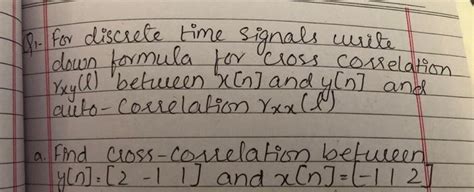 Q1- For discrete time signals write
down formula for cross correlation
rxy(l) between x[n] and y[n] and
auto-correlation rxx(l)
a. Find cross-correlation between
y[n]=[2 -1 1] and x[n]=[-1 1 2]